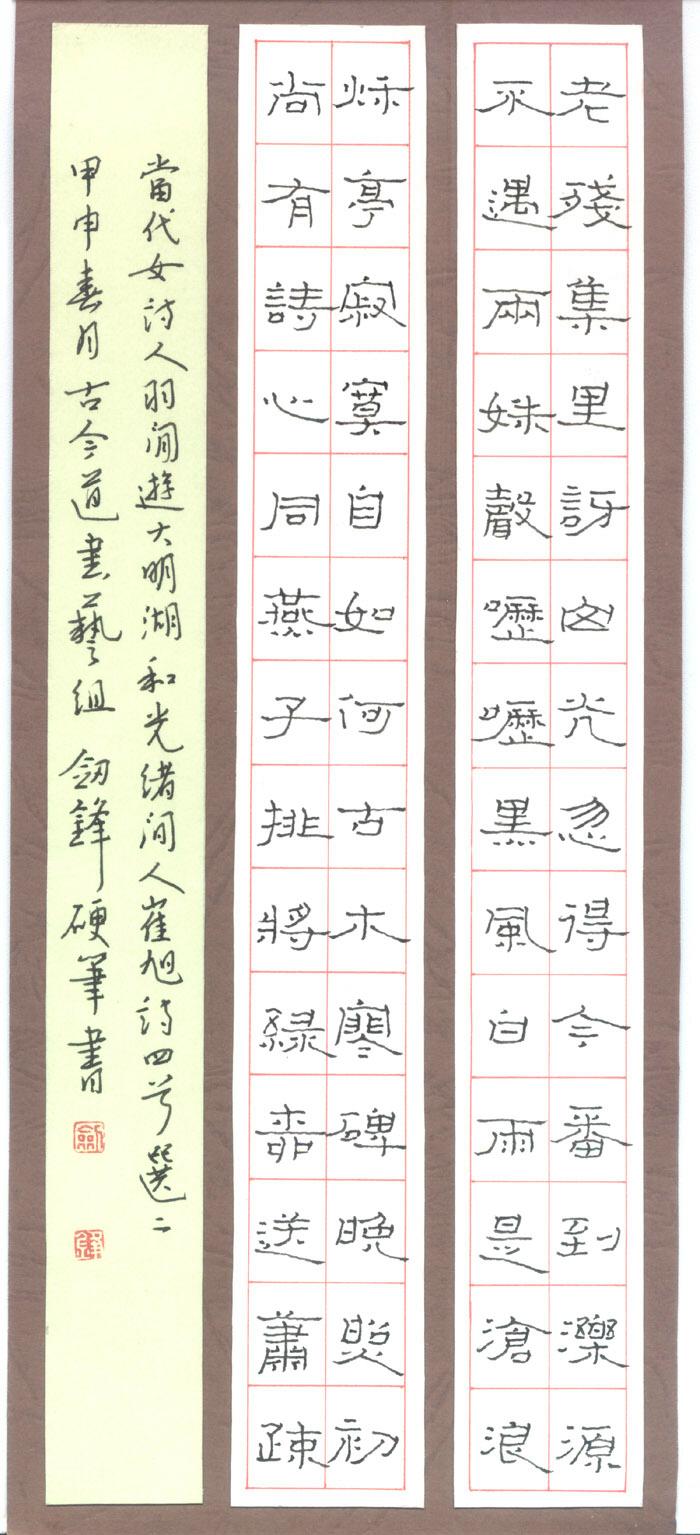 老殘集里訝光忽得今番到濼源
不遇兩姝聲嚦嚦黑風白雨是滄浪
秌亭寂寞自如何古木寒碑晚照初
尚有詩心同燕子排將綠柳送蕭疎
當代女詩人羽閒遊大明湖和光緒間人崔旭詩四首選二
甲申春月古今道書藝組 劒鋒硬筆書